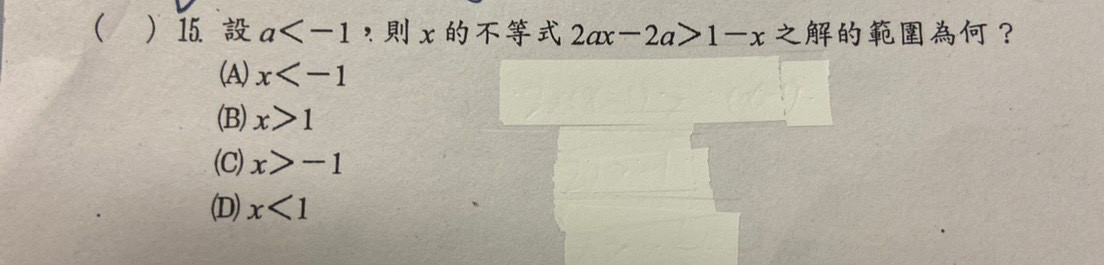 ( ) 15. 設 a<-1，則 x 的不等式 2ax-2a>1-x 之解的範圍為何？
(A) x<-1
(B) x>1
(C) x>-1
(D) x<1